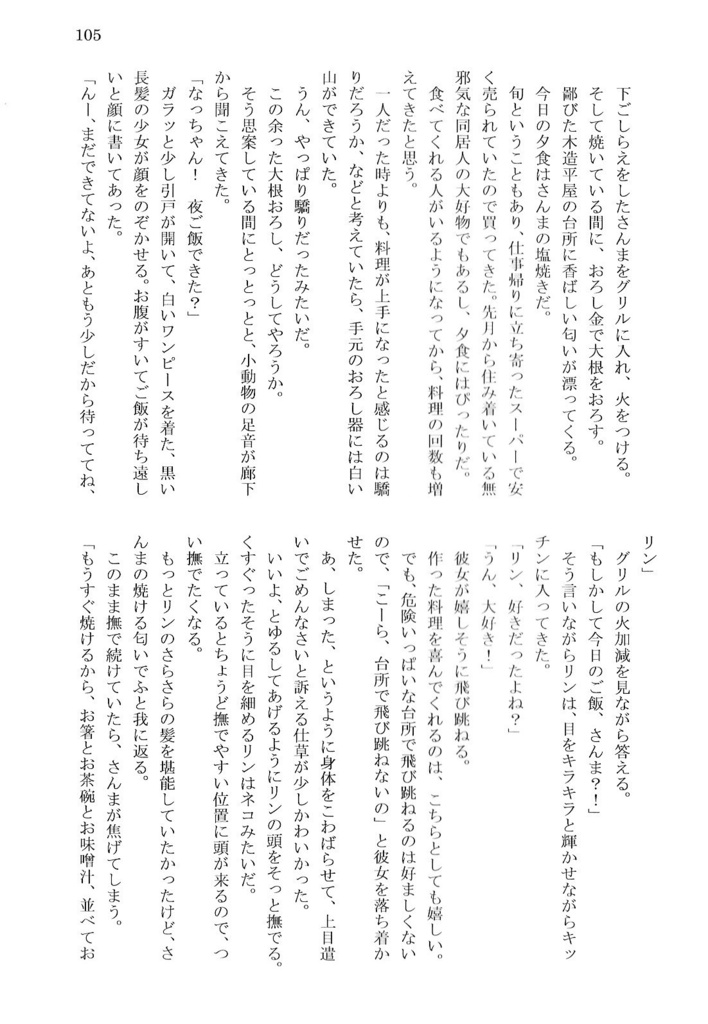 105
下ごしらえをしたさんまをグリルに入れ、火をつける。
そして焼いている間に、おろし金で大根をおろす。
鄙びた木造平屋の台所に香ばしい匂いが漂ってくる。
今日の夕食はさんまの塩焼きだ。
旬ということもあり、仕事帰りに立ち寄ったスーパーで安
く売られていたので買ってきた。先月から住み着いている無
邪気な同居人の大好物でもあるし、夕食にはぴったりだ。
食べてくれる人がいるようになってから、料理の回数も増
えてきたと思う。
一人だった時よりも、料理が上手になったと感じるのは驕
りだろうか、などと考えていたら、手元のおろし器には白い
山ができていた。
うん、やっぱり驕りだったみたいだ。
この余った大根おろし、どうしてやろうか。
そう思案している間にとっとっとと、小動物の足音が廊下
から聞こえてきた。
「なっちゃん！　夜ご飯できた？」
ガラッと少し引戸が開いて、白いワンピースを着た、黒い
長髪の少女が顔をのぞかせる。お腹がすいてご飯が待ち遠し
いと顔に書いてあった。
「んー、まだできてないよ、あともう少しだから待っててね、
リン」
グリルの火加減を見ながら答える。
「もしかして今日のご飯、さんま？！」
そう言いながらリンは、目をキラキラと輝かせながらキッ
チンに入ってきた。
「リン、好きだったよね？」
「うん、大好き！」
彼女が嬉しそうに飛び跳ねる。
作った料理を喜んでくれるのは、こちらとしても嬉しい。
でも、危険いっぱいな台所で飛び跳ねるのは好ましくない
ので、「こーら、台所で飛び跳ねないの」と彼女を落ち着か
せた。
あ、しまった、というように身体をこわばらせて、上目遣
いでごめんなさいと訴える仕草が少しかわいかった。
いいよ、とゆるしてあげるようにリンの頭をそっと撫でる。
くすぐったそうに目を細めるリンはネコみたいだ。
立っているとちょうど撫でやすい位置に頭が来るので、つ
い撫でたくなる。
もっとリンのさらさらの髪を堪能していたかったけど、さ
んまの焼ける匂いでふと我に返る。
このまま撫で続けていたら、さんまが焦げてしまう。
「もうすぐ焼けるから、お箸とお茶碗とお味噌汁、並べてお